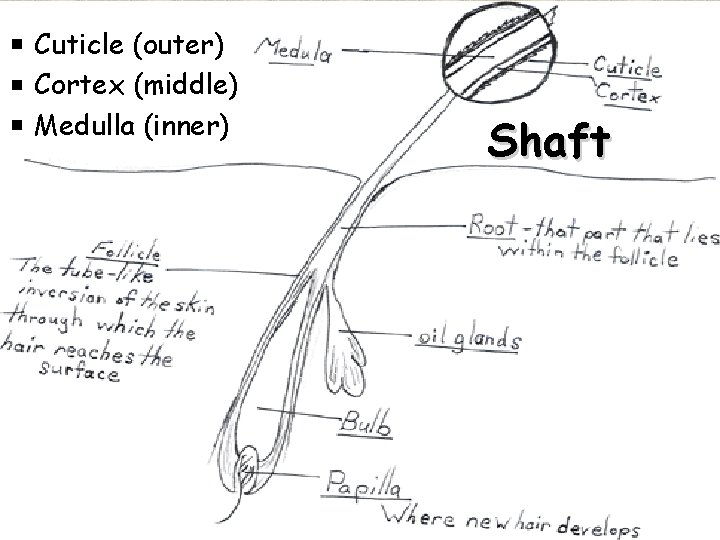 ▪ Cuticle (outer)
▪ Cortex (middle)
▪ Medulla (inner)
Medula
Cuticle
Cortex
Shaft
Root - that part that lies
within the follicle
Follicle
The tube-like
inversion of the skin
through which the
hair reaches the
surface
oil glands
Bulb
Papilla
Where new hair develops